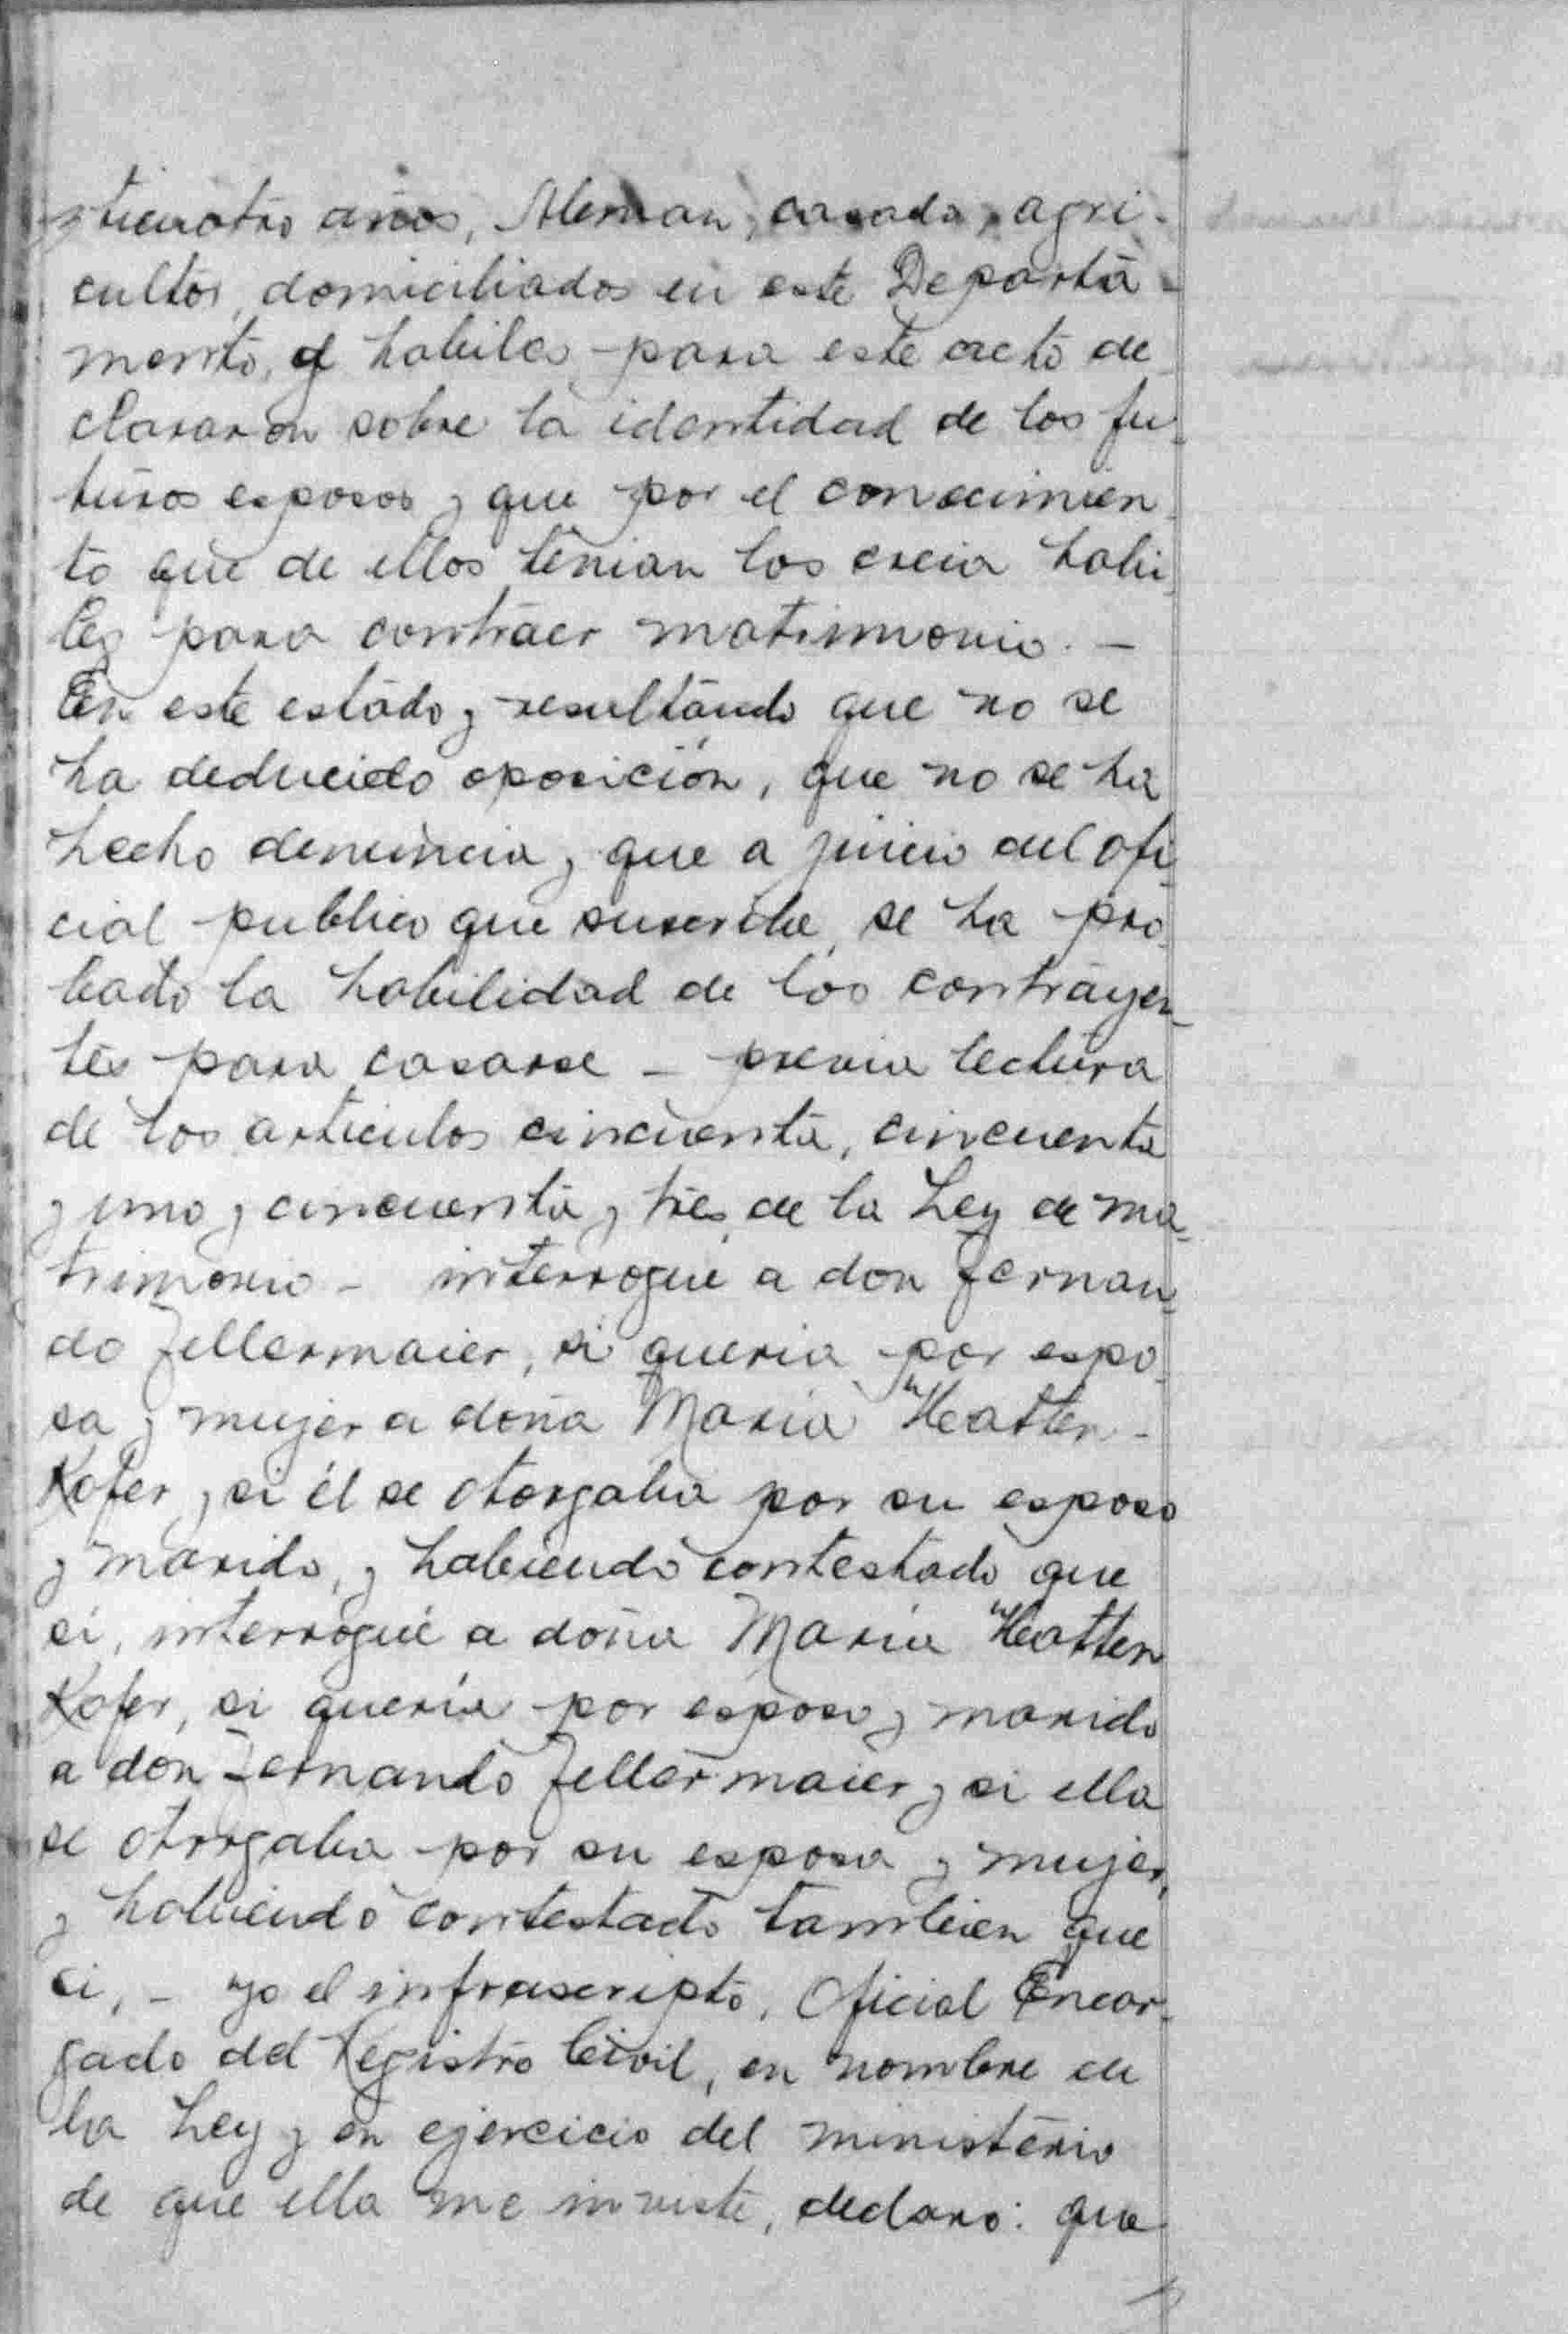 años, Aleman, casado, agri-
cultor, domiciliados en este Departa-
mento, y habiles para este acto de-
clararon sobre la identidad de los fu-
turos esposos y que por el conocimien-
to que de ellos tenian los creia habi-
les para contraer matrimonio. -
En este estado y resultando que no se
ha deducido oposición, que no se ha
hecho denuncia y que a juicio del ofi-
cial publico que suscribe, se ha pro-
bado la habilidad de los contrayen-
tes para casarse - previa lectura
de los articulos cincuenta, cincuenta
y uno y cincuenta y tres de la Ley de ma-
trimonio - interrogué a don Fernan-
do Zellermaier, si queria por espo-
sa y mujer a doña Maria Hatten-
Kofer y si él se otorgaba por su esposo
y marido, y habiendo contestado que
sí, interrogué a doña Maria Hatten
Kofer, si quería por esposo y marido
a don Fernando Zellermaier y si ella
se otorgaba por su esposa y mujer,
y habiendo contestado tambien que
si, - yo el infrascripto, Oficial Encar-
gado del Registro Civil, en nombre de
la Ley y en ejercicio del ministerio
de que ella me inviste, declaro: que